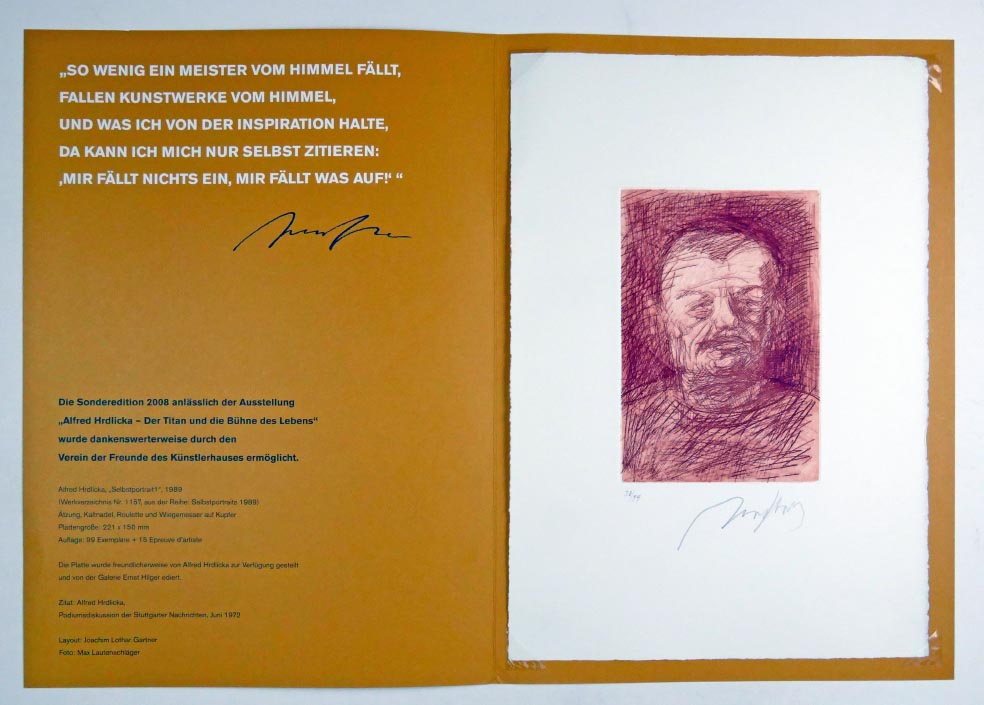 „SO WENIG EIN MEISTER VOM HIMMEL FÄLLT,
FALLEN KUNSTWERKE VOM HIMMEL,
UND WAS ICH VON DER INSPIRATION HALTE,
DA KANN ICH MICH NUR SELBST ZITIEREN:
‚MIR FÄLLT NICHTS EIN, MIR FÄLLT WAS AUF!‘ “
Die Sonderedition 2008 anlässlich der Ausstellung
„Alfred Hrdlicka – Der Titan und die Bühne des Lebens“
wurde dankenswerterweise durch den
Verein der Freunde des Künstlerhauses ermöglicht.
Alfred Hrdlicka, „Selbstportrait“, 1989
(Werkverzeichnis Nr. 1157, aus der Reihe: Selbstportraits 1989)
Ätzung, Kaltnadel, Roulette und Wiegemesser auf Kupfer
Plattengröße: 221 x 150 mm
Auflage: 99 Exemplare + 15 Epreuve d'artiste
Die Platte wurde freundlicherweise von Alfred Hrdlicka zur Verfügung gestellt
und von der Galerie Ernst Hilger ediert.
Zitat: Alfred Hrdlicka,
Podiumsdiskussion der Stuttgarter Nachrichten, Juni 1972
Layout: Joachim Lothar Gartner
Foto: Max Lautenschläger